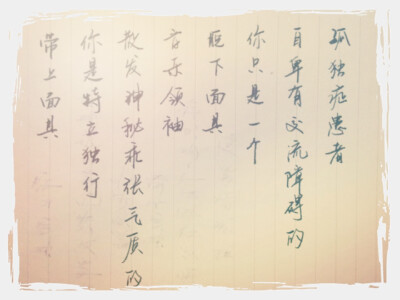 带上面具
你是特立独行
散发神秘乖张气质的
音乐领袖
脱下面具
你只是一个
自卑有交流障碍的
孤独症患者